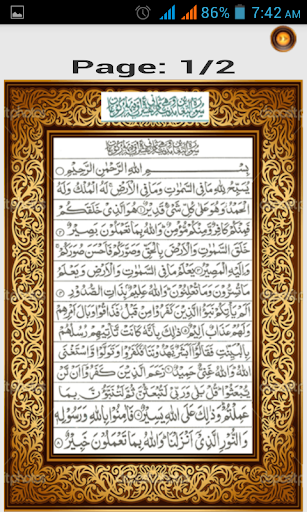 86% 7:42 AM
Page: 1/2
بِسْمِ اللهِ الرَّحْمٰنِ الرَّحِيْمِ
يُسَبِّحُ لِلّٰهِ مَا فِي السَّمٰوٰتِ وَمَا فِي الْاَرْضِ لَهُ الْمُلْكُ وَلَهُ
الْحَمْدُ وَهُوَ عَلٰى كُلِّ شَيْءٍ قَدِيْرٌ هُوَ الَّذِيْ خَلَقَكُمْ
فَمِنْكُمْ كَافِرٌ وَّمِنْكُمْ مُّؤْمِنٌ وَاللهُ بِمَا تَعْمَلُوْنَ بَصِيْرٌ
خَلَقَ السَّمٰوٰتِ وَالْاَرْضَ بِالْحَقِّ وَصَوَّرَكُمْ فَاَحْسَنَ صُوَرَكُمْ
وَاِلَيْهِ الْمَصِيْرُ يَعْلَمُ مَا فِي السَّمٰوٰتِ وَالْاَرْضِ وَيَعْلَمُ
مَا تُسِرُّوْنَ وَمَا تُعْلِنُوْنَ وَاللهُ عَلِيْمٌ بِذَاتِ الصُّدُوْرِ
اَلَمْ يَاْتِكُمْ نَبَؤُا الَّذِيْنَ كَفَرُوْا مِنْ قَبْلُ فَذَاقُوْا وَبَالَ اَمْرِهِمْ
وَلَهُمْ عَذَابٌ اَلِيْمٌ ذٰلِكَ بِاَنَّهٗ كَانَتْ تَّاْتِيْهِمْ رُسُلُهُمْ
بِالْبَيِّنٰتِ فَقَالُوْۤا اَبَشَرٌ يَّهْدُوْنَنَا فَكَفَرُوْا وَتَوَلَّوْا وَّاسْتَغْنَى
اللهُ وَاللهُ غَنِيٌّ حَمِيْدٌ زَعَمَ الَّذِيْنَ كَفَرُوْۤا اَنْ لَّنْ
يُّبْعَثُوْا قُلْ بَلٰى وَرَبِّيْ لَتُبْعَثُنَّ ثُمَّ لَتُنَبَّؤُنَّ بِمَا
عَمِلْتُمْ وَذٰلِكَ عَلَى اللهِ يَسِيْرٌ فَاٰمِنُوْا بِاللهِ وَرَسُوْلِهٖ
وَالنُّوْرِ الَّذِيْۤ اَنْزَلْنَا وَاللهُ بِمَا تَعْمَلُوْنَ خَبِيْرٌ